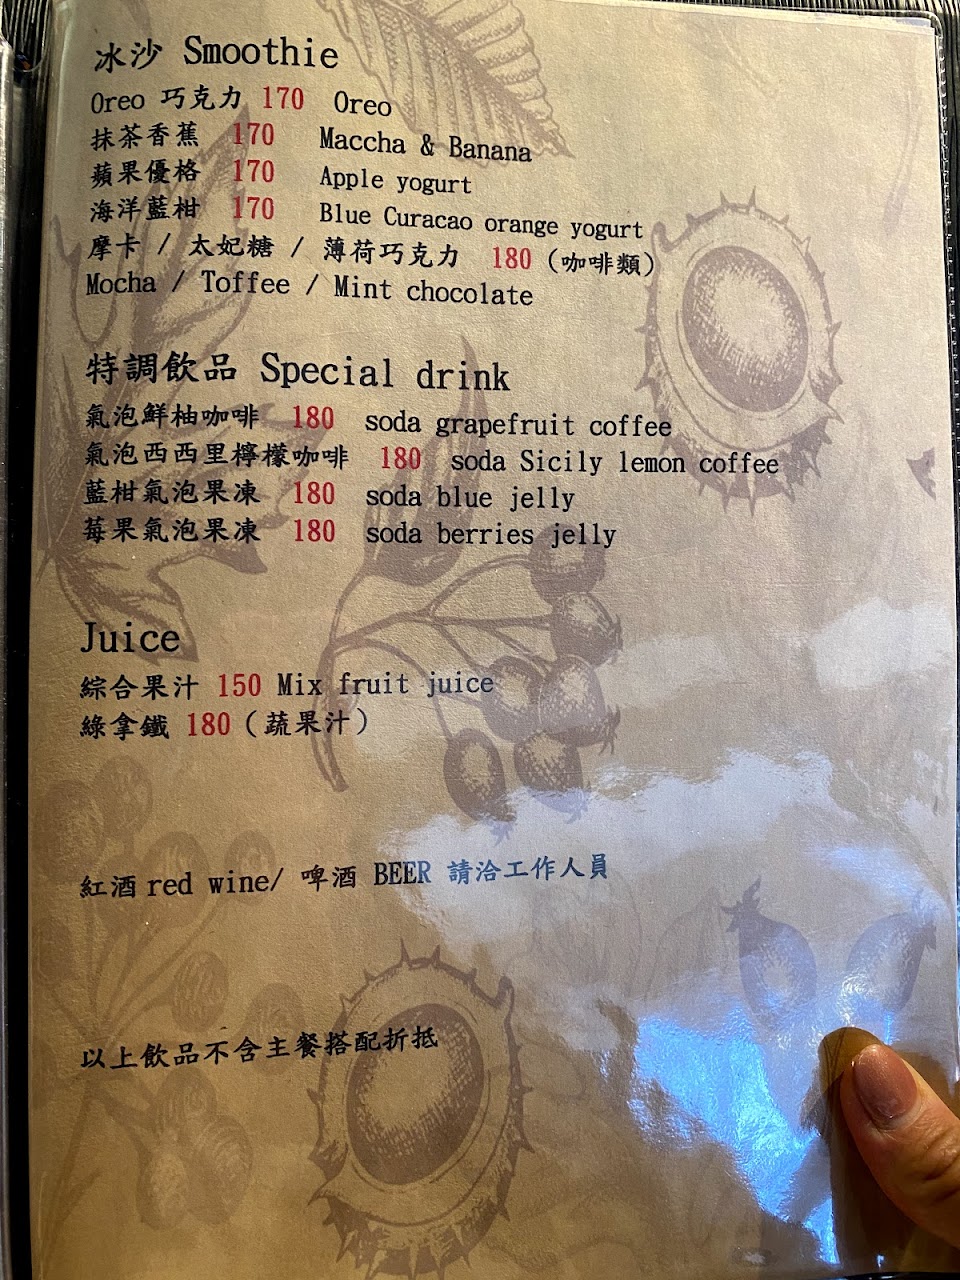 冰沙 Smoothie
Oreo 巧克力 170 Oreo
抹茶香蕉 170 Maccha & Banana
蘋果優格 170 Apple yogurt
海洋藍柑 170 Blue Curacao orange yogurt
摩卡 / 太妃糖 / 薄荷巧克力 180 (咖啡類)
Mocha / Toffee / Mint chocolate
特調飲品 Special drink
氣泡鮮柚咖啡 180 soda grapefruit coffee
氣泡西西里檸檬咖啡 180 soda Sicily lemon coffee
藍柑氣泡果凍 180 soda blue jelly
莓果氣泡果凍 180 soda berries jelly
Juice
綜合果汁 150 Mix fruit juice
綠拿鐵 180 (蔬果汁)
紅酒 red wine/ 啤酒 BEER 請洽工作人員
以上飲品不含主餐搭配折抵